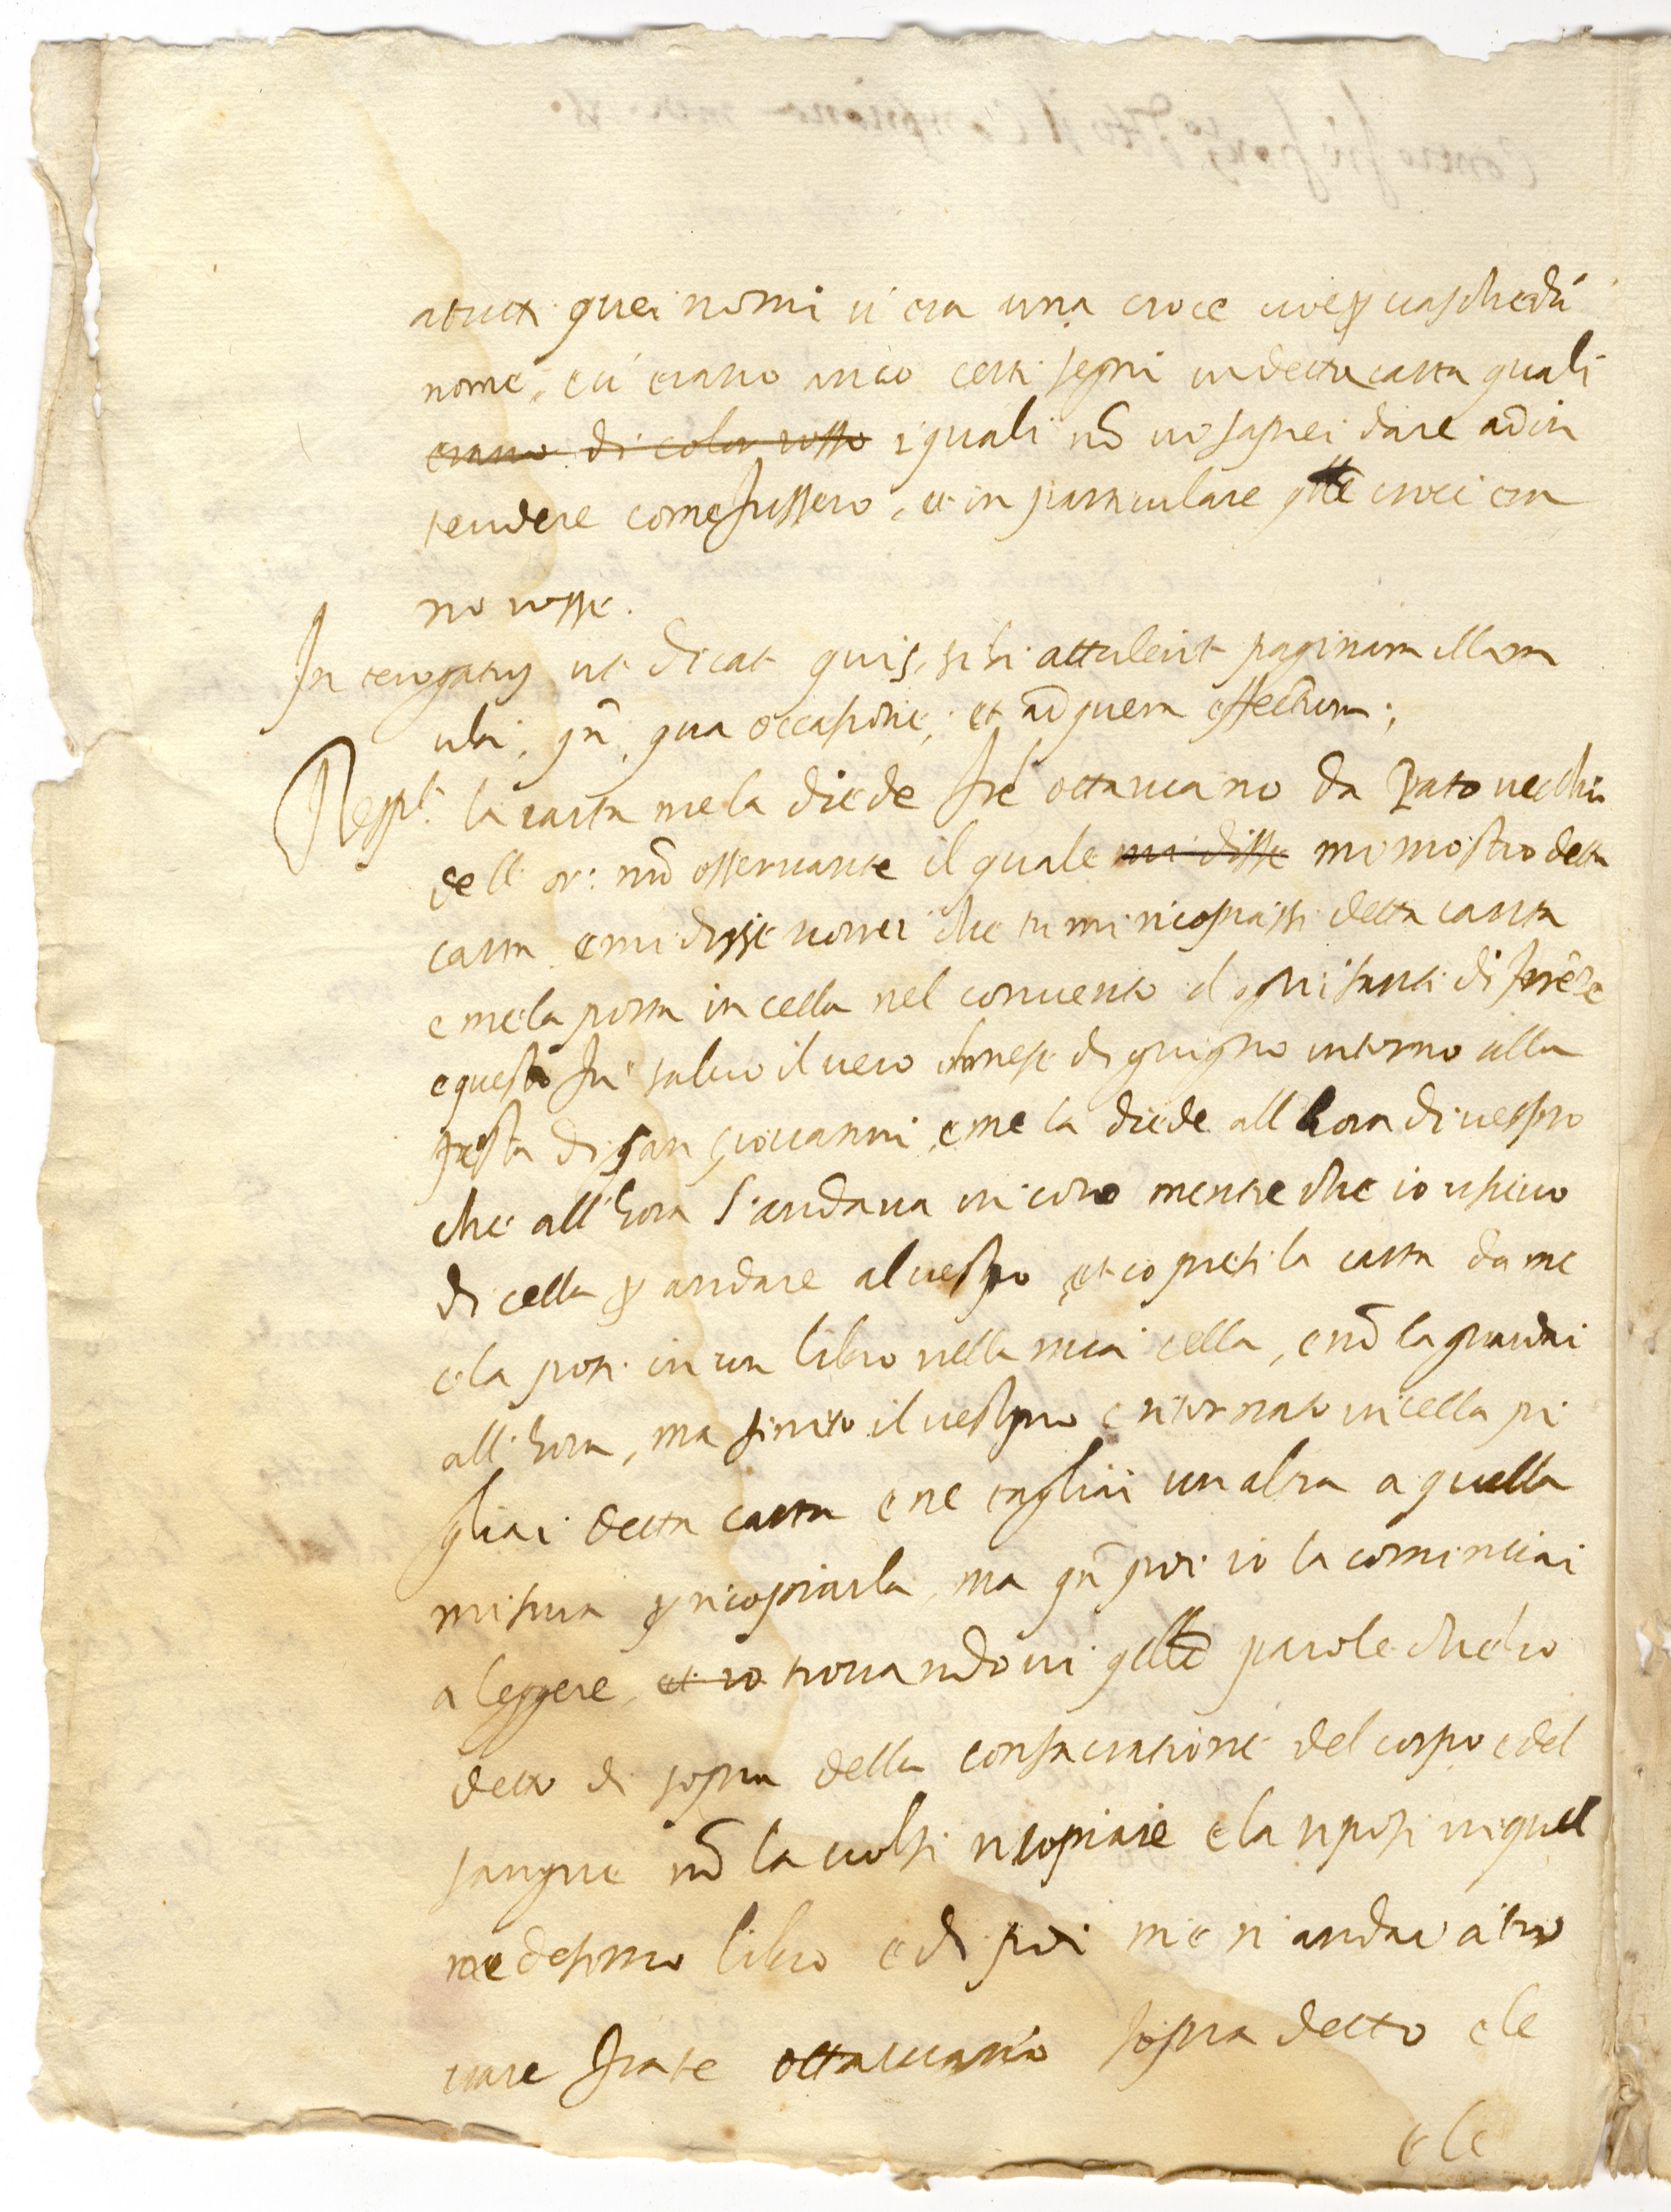 a tutti quei nomi vi era una croce cioe p ciaschedũ
nome, e vi erano anco certi segni in detta carta quali
erano di color rosso i quali nõ vi saprei dare ad in
tendere come fussero, et in particulare qlle croci era
no rosse.
Interrogatus ut dicat quis sibi attulerit paginam illam
ubi, qñ, qua occasione, et ad quem effectum;
Respt. la carta me la diede frè ottaviano da Pratovecchio
dell or: mĩ osservante il quale mi disse mi mostro detta
carta e mi disse vorrei che tu mi ricopiassi detta carta
e me la porta in cella nel convento d ogni santi di firẽze
e questo fu salvo il vero del mese di giugno intorno alla
festa di san giovanni, e me la diede all hora di vespro
che all'hora s'andava in coro mentre che io uscivo
di cella p andare al vespro et io presi la carta da me
e la posi in un libro nella mia cella, e nõ la guardai
all'hora, ma finito il vespro e ritornato in cella pi
gliai detta carta e ne tagliai un altra a quella
misura p ricopiarla, ma qñ poi io la cominciai
a leggere, et io trovandovi qlle parole che ho
detto di sopra della consacratione del corpo e del
sangue nõ la volsi ricopiare e la riposi in quel
medesimo libro e di poi me n'andai a tro
vare frate ottaviano sopra detto e le
e le